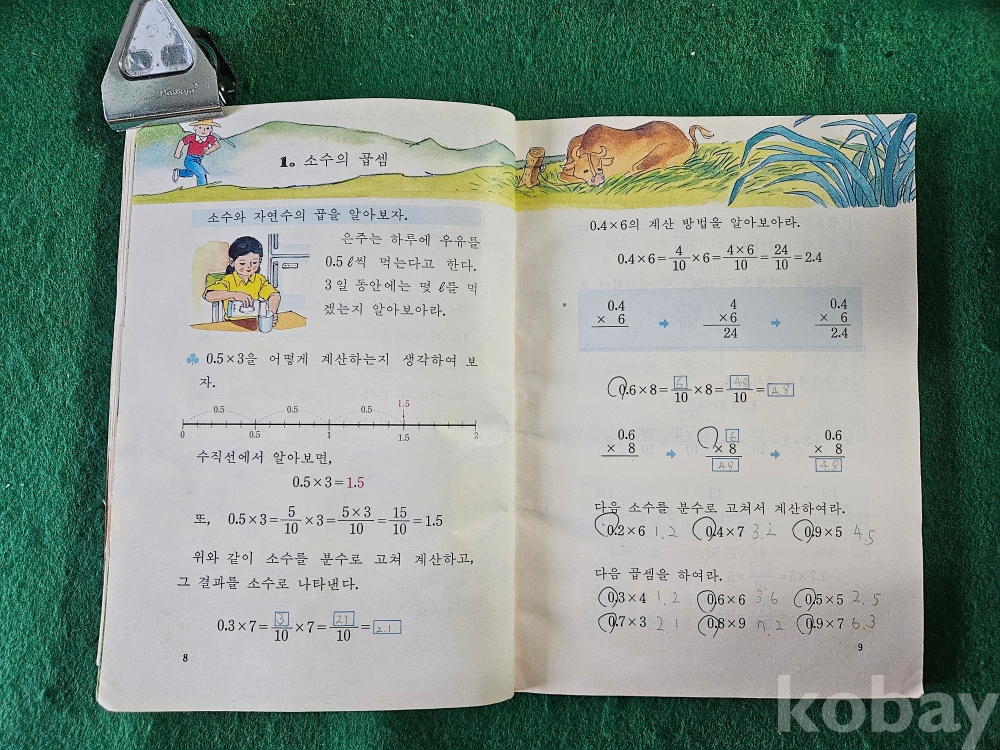 1. 소수의 곱셈
소수와 자연수의 곱을 알아보자.
은주는 하루에 우유를
0.5 ℓ씩 먹는다고 한다.
3 일 동안에는 몇 ℓ를 먹
겠는지 알아보아라.
♣ 0.5×3을 어떻게 계산하는지 생각하여 보
자.
0.5 0.5 0.5 1.5
0 0.5 1 1.5 2
수직선에서 알아보면,
0.5×3=1.5
또, 0.5×3=5/10×3=5×3/10=15/10=1.5
위와 같이 소수를 분수로 고쳐 계산하고,
그 결과를 소수로 나타낸다.
0.3×7=3/10×7=21/10=2.1
8
0.4×6의 계산 방법을 알아보아라.
0.4×6=4/10×6=4×6/10=24/10=2.4
0.4 4 0.4
× 6 ➡ ×6 ➡ × 6
24 2.4
0.6×8=6/10×8=48/10=4.8
0.6 6 0.6
× 8 ➡ × 8 ➡ × 8
48 4.8
다음 소수를 분수로 고쳐서 계산하여라.
0.2×6 1.2 0.4×7 3.2 0.9×5 4.5
다음 곱셈을 하여라.
0.3×4 1.2 0.6×6 3.6 0.5×5 2.5
0.7×3 2.1 0.8×9 7.2 0.9×7 6.3
9
kobay